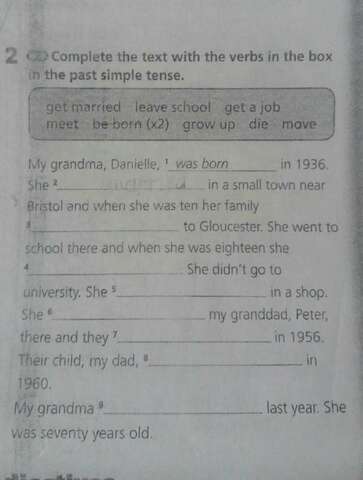 2 Complete the text with the verbs in the box
in the past simple tense.
get married leave school get a job
meet be born (x2) grow up die move
My grandma, Danielle, 1 was born in 1936.
She 2 in a small town near
Bristol and when she was ten her family
3 to Gloucester. She went to
school there and when she was eighteen she
4 . She didn't go to
university. She 5 in a shop.
She 6 my granddad, Peter,
there and they 7 in 1956.
Their child, my dad, 8 in
1960.
My grandma 9 last year. She
was seventy years old.